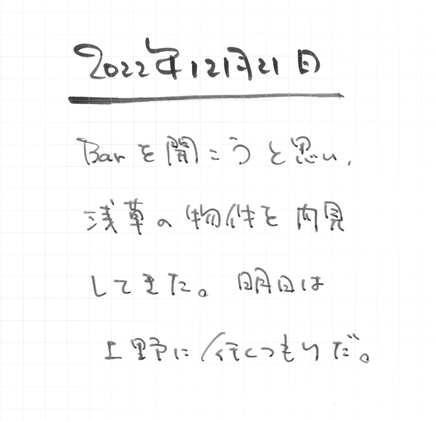 2022年12月21日
Barを開こうと思い、
浅草の物件を内見
してきた。明日は
上野に行くつもりだ。